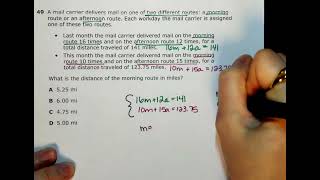 40 A mail carrier delivers mail on one of two different routes: a morning
route or an afternoon route. Each workday the mail carrier is assigned
one of these two routes.
• Last month the mail carrier delivered mail on the morning
route 16 times and on the afternoon route 12 times, for a
total distance traveled of 141 miles. 16m+12a=141
• This month the mail carrier delivered mail on the morning
route 10 times and on the afternoon route 15 times, for a
total distance traveled of 123.75 miles. 10m+15a=123.75
What is the distance of the morning route in miles?
A 5.25 mi
B 6.00 mi
C 4.75 mi
D 5.00 mi
16m+12a=141
10m+15a=123.75
m=